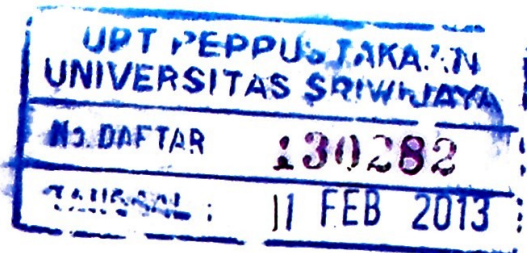 UPT PERPUSTAKAAN
UNIVERSITAS SRIWIJAYA
No. DAFTAR 130282
TANGGAL : 11 FEB 2013